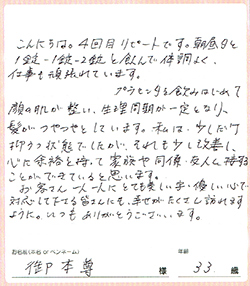 こんにちは。4回目リピートです。朝昼夕と
1錠-1錠-2錠と飲んで体調よく、
仕事も頑張れています。
プラセンタを飲みはじめて
顔の肌が整い、生理周期が一定となり、
髪がつやつやとしています。私は、少しだけ
抑うつ状態でしたが、それも少し改善し、
心に余裕を持って家族や同僚・友人に接する
ことができていると思います。
お客さん一人一人にとても美しい字・優しい心で
対応して下さる皆さんにも、幸せがたくさん訪れます
ように。いつもありがとうございます。
お名前(本名 or ペンネーム)
年齢
御本尊 様 33歳